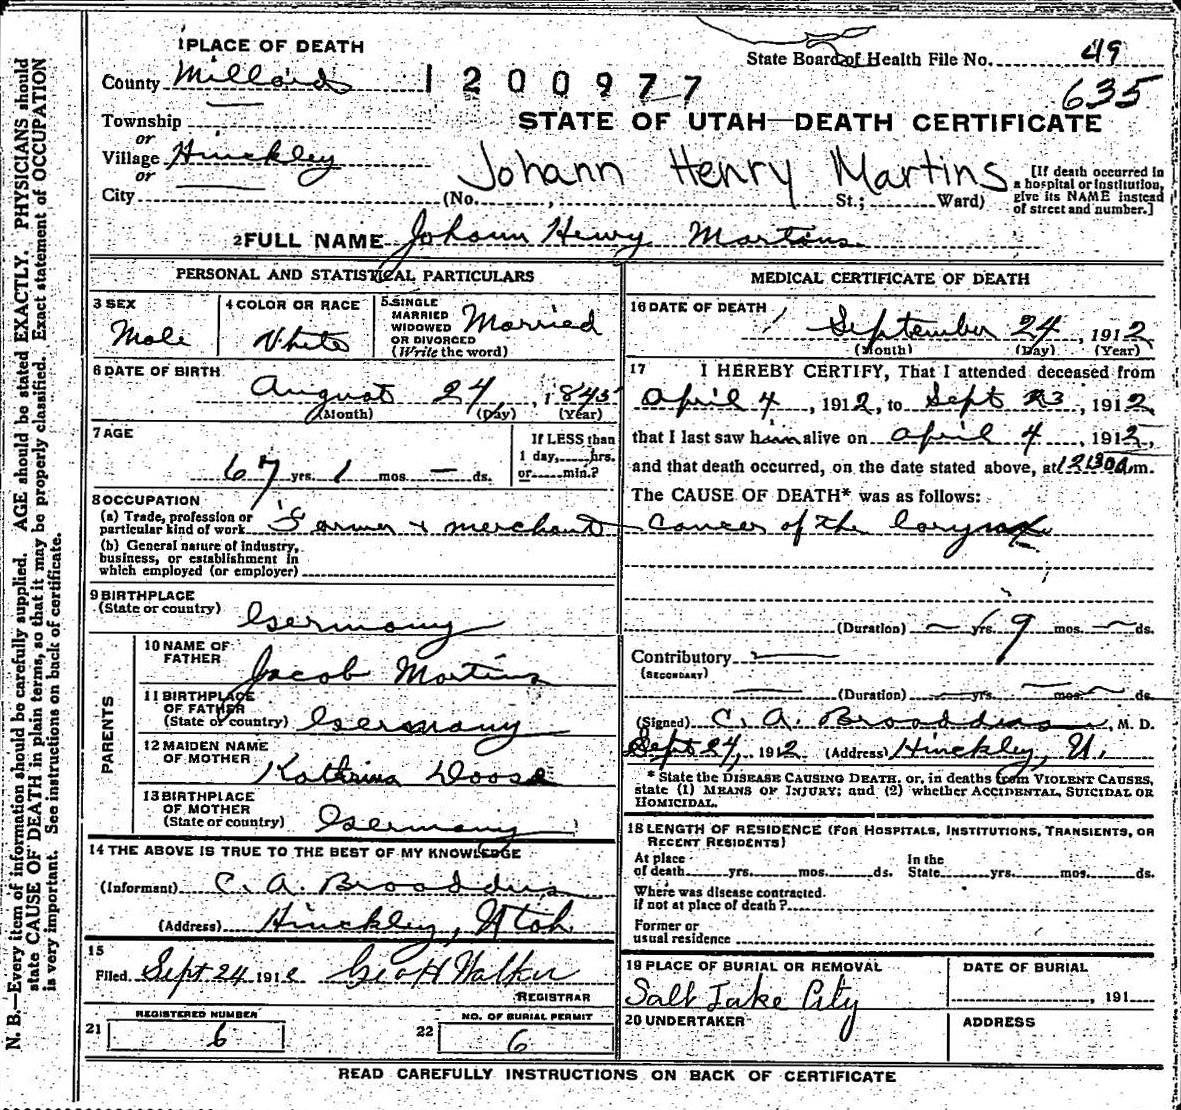 1 PLACE OF DEATH
County Millard
1200977
State Board of Health File No. 49
635
Township
or
Village Hinckley
or
City
STATE OF UTAH—DEATH CERTIFICATE
Johann Henry Martins
(No. , St.; Ward)
[If death occurred in
a hospital or institution,
give its NAME instead
of street and number.]
2 FULL NAME Johann Henry Martins
PERSONAL AND STATISTICAL PARTICULARS
3 SEX
Male
4 COLOR OR RACE
White
5 SINGLE
MARRIED
WIDOWED
OR DIVORCED
(Write the word)
Married
6 DATE OF BIRTH
August 24, 1845
(Month) (Day) (Year)
7 AGE
67 yrs. 1 mos. — ds.
If LESS than
1 day, hrs.
or min.?
8 OCCUPATION
(a) Trade, profession or
particular kind of work Farmer & merchant
(b) General nature of industry,
business, or establishment in
which employed (or employer)
9 BIRTHPLACE
(State or country) Germany
PARENTS
10 NAME OF
FATHER Jacob Martins
11 BIRTHPLACE
OF FATHER
(State or country) Germany
12 MAIDEN NAME
OF MOTHER Kathrina Doose
13 BIRTHPLACE
OF MOTHER
(State or country) Germany
14 THE ABOVE IS TRUE TO THE BEST OF MY KNOWLEDGE
(Informant) C. A. Broaddus
(Address) Hinckley, Utah
15
Filed Sept. 24 1912 Geo H Walker
REGISTRAR
21 REGISTERED NUMBER
6
22 NO. OF BURIAL PERMIT
6
MEDICAL CERTIFICATE OF DEATH
16 DATE OF DEATH
September 24, 1912
(Month) (Day) (Year)
17 I HEREBY CERTIFY, That I attended deceased from
April 4, 1912, to Sept 23, 1912,
that I last saw him alive on April 4, 1912,
and that death occurred, on the date stated above, at 12:30 a m.
The CAUSE OF DEATH* was as follows:
Cancer of the larynx
(Duration) — yrs. 9 mos. — ds.
Contributory —
(SECONDARY)
— (Duration) — yrs. — mos. — ds.
(Signed) C. A. Broaddus, M. D.
Sept 24, 1912 (Address) Hinckley, U.
* State the DISEASE CAUSING DEATH, or, in deaths from VIOLENT CAUSES,
state (1) MEANS OF INJURY; and (2) whether ACCIDENTAL, SUICIDAL OR
HOMICIDAL.
18 LENGTH OF RESIDENCE (FOR HOSPITALS, INSTITUTIONS, TRANSIENTS, OR
RECENT RESIDENTS)
At place
of death yrs. mos. ds.
In the
State yrs. mos. ds.
Where was disease contracted.
if not at place of death?
Former or
usual residence
19 PLACE OF BURIAL OR REMOVAL
Salt Lake City
DATE OF BURIAL
, 191
20 UNDERTAKER
ADDRESS
READ CAREFULLY INSTRUCTIONS ON BACK OF CERTIFICATE
N. B.—Every item of information should be carefully supplied. AGE should be stated EXACTLY. PHYSICIANS should
state CAUSE OF DEATH in plain terms, so that it may be properly classified. Exact statement of OCCUPATION
is very important. See instructions on back of certificate.